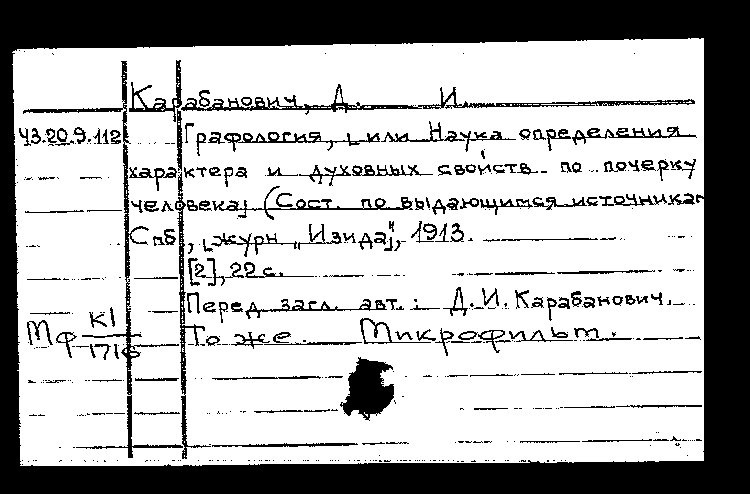 Карабанович, Д. И.
43.20.9.112 Графология, [или Наука определения
характера и духовных свойств по почерку
человека] (Сост. по выдающимся источникам
Спб, [журн "Изида"], 1913.
[2], 22 с.
Перед загл. авт.: Д. И. Карабанович.
Мф К1/1716 То же. Микрофильм.